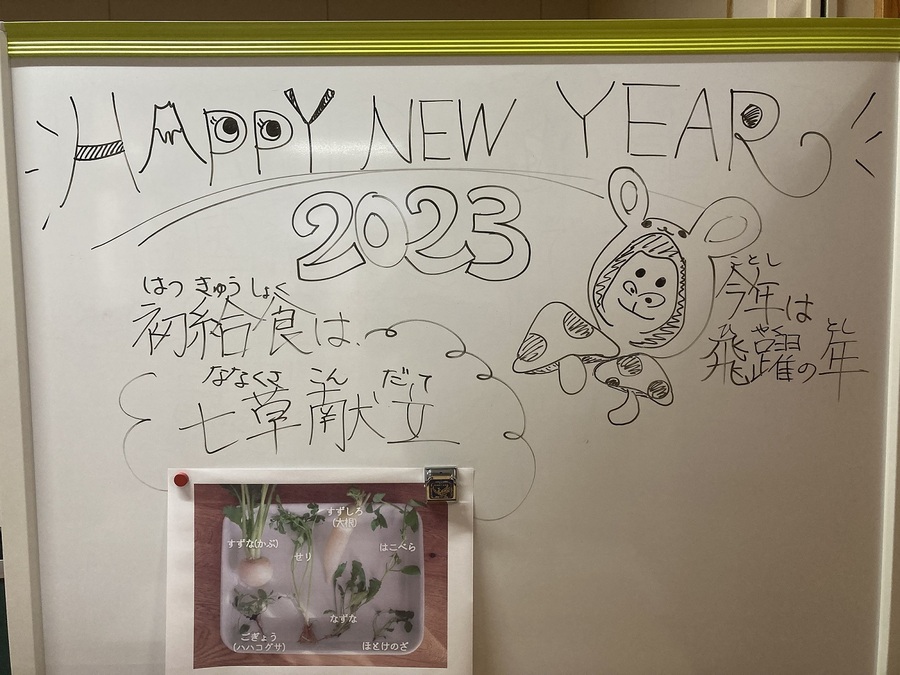 HAPPY NEW YEAR
2023
はつ きゅう しょく
初給食は、
ななくさ こん だて
七草献立
ことし
今年は
ひ やく とし
飛躍の年
すずしろ
(大根)
すずな(かぶ)
せり
はこべら
ごぎょう
(ハハコグサ)
なずな
ほとけのざ